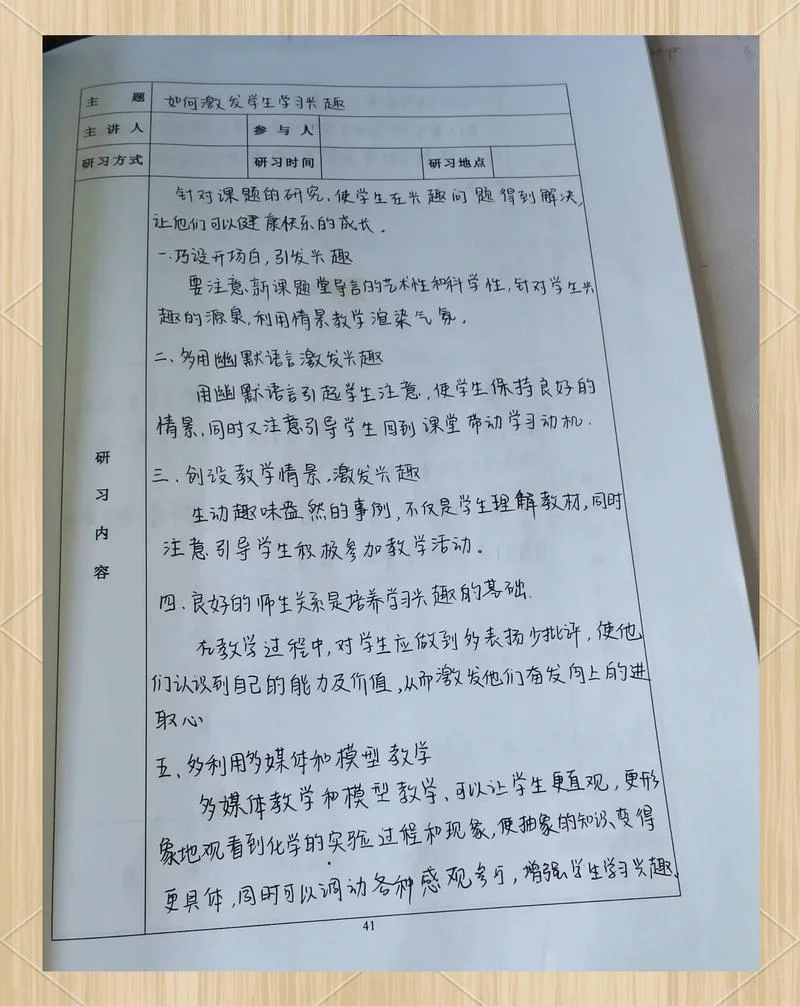 主 题 如何激发学生学习兴趣
主 讲 人 参 与 人
研习方式 研习时间 研习地点
研习内容
针对课题的研究,使学生在兴趣问题得到解决,
让他们可以健康快乐的成长。
一.巧设开场白,引发兴趣
要注意新课题堂导言的艺术性和科学性,针对学生兴
趣的源泉,利用情景教学渲染气氛。
二、多用幽默语言激发兴趣
用幽默语言引起学生注意,使学生保持良好的
情景,同时又注意引导学生回到课堂带动学习动机.
三、创设教学情景,激发兴趣
生动趣味盎然的事例,不仅是学生理解教材,同时
注意引导学生积极参加教学活动。
四、良好的师生关系是培养学习兴趣的基础.
在教学过程中,对学生应做到多表扬少批评,使他
们认识到自己的能力及价值,从而激发他们奋发向上的进
取心
五、多利用多媒体和模型教学
多媒体教学和模型教学、可以让学生更直观,更形
象地观看到化学的实验过程和现象,使抽象的知识变得
更具体,同时可以调动各种感观参与,增强学生学习兴趣.
41